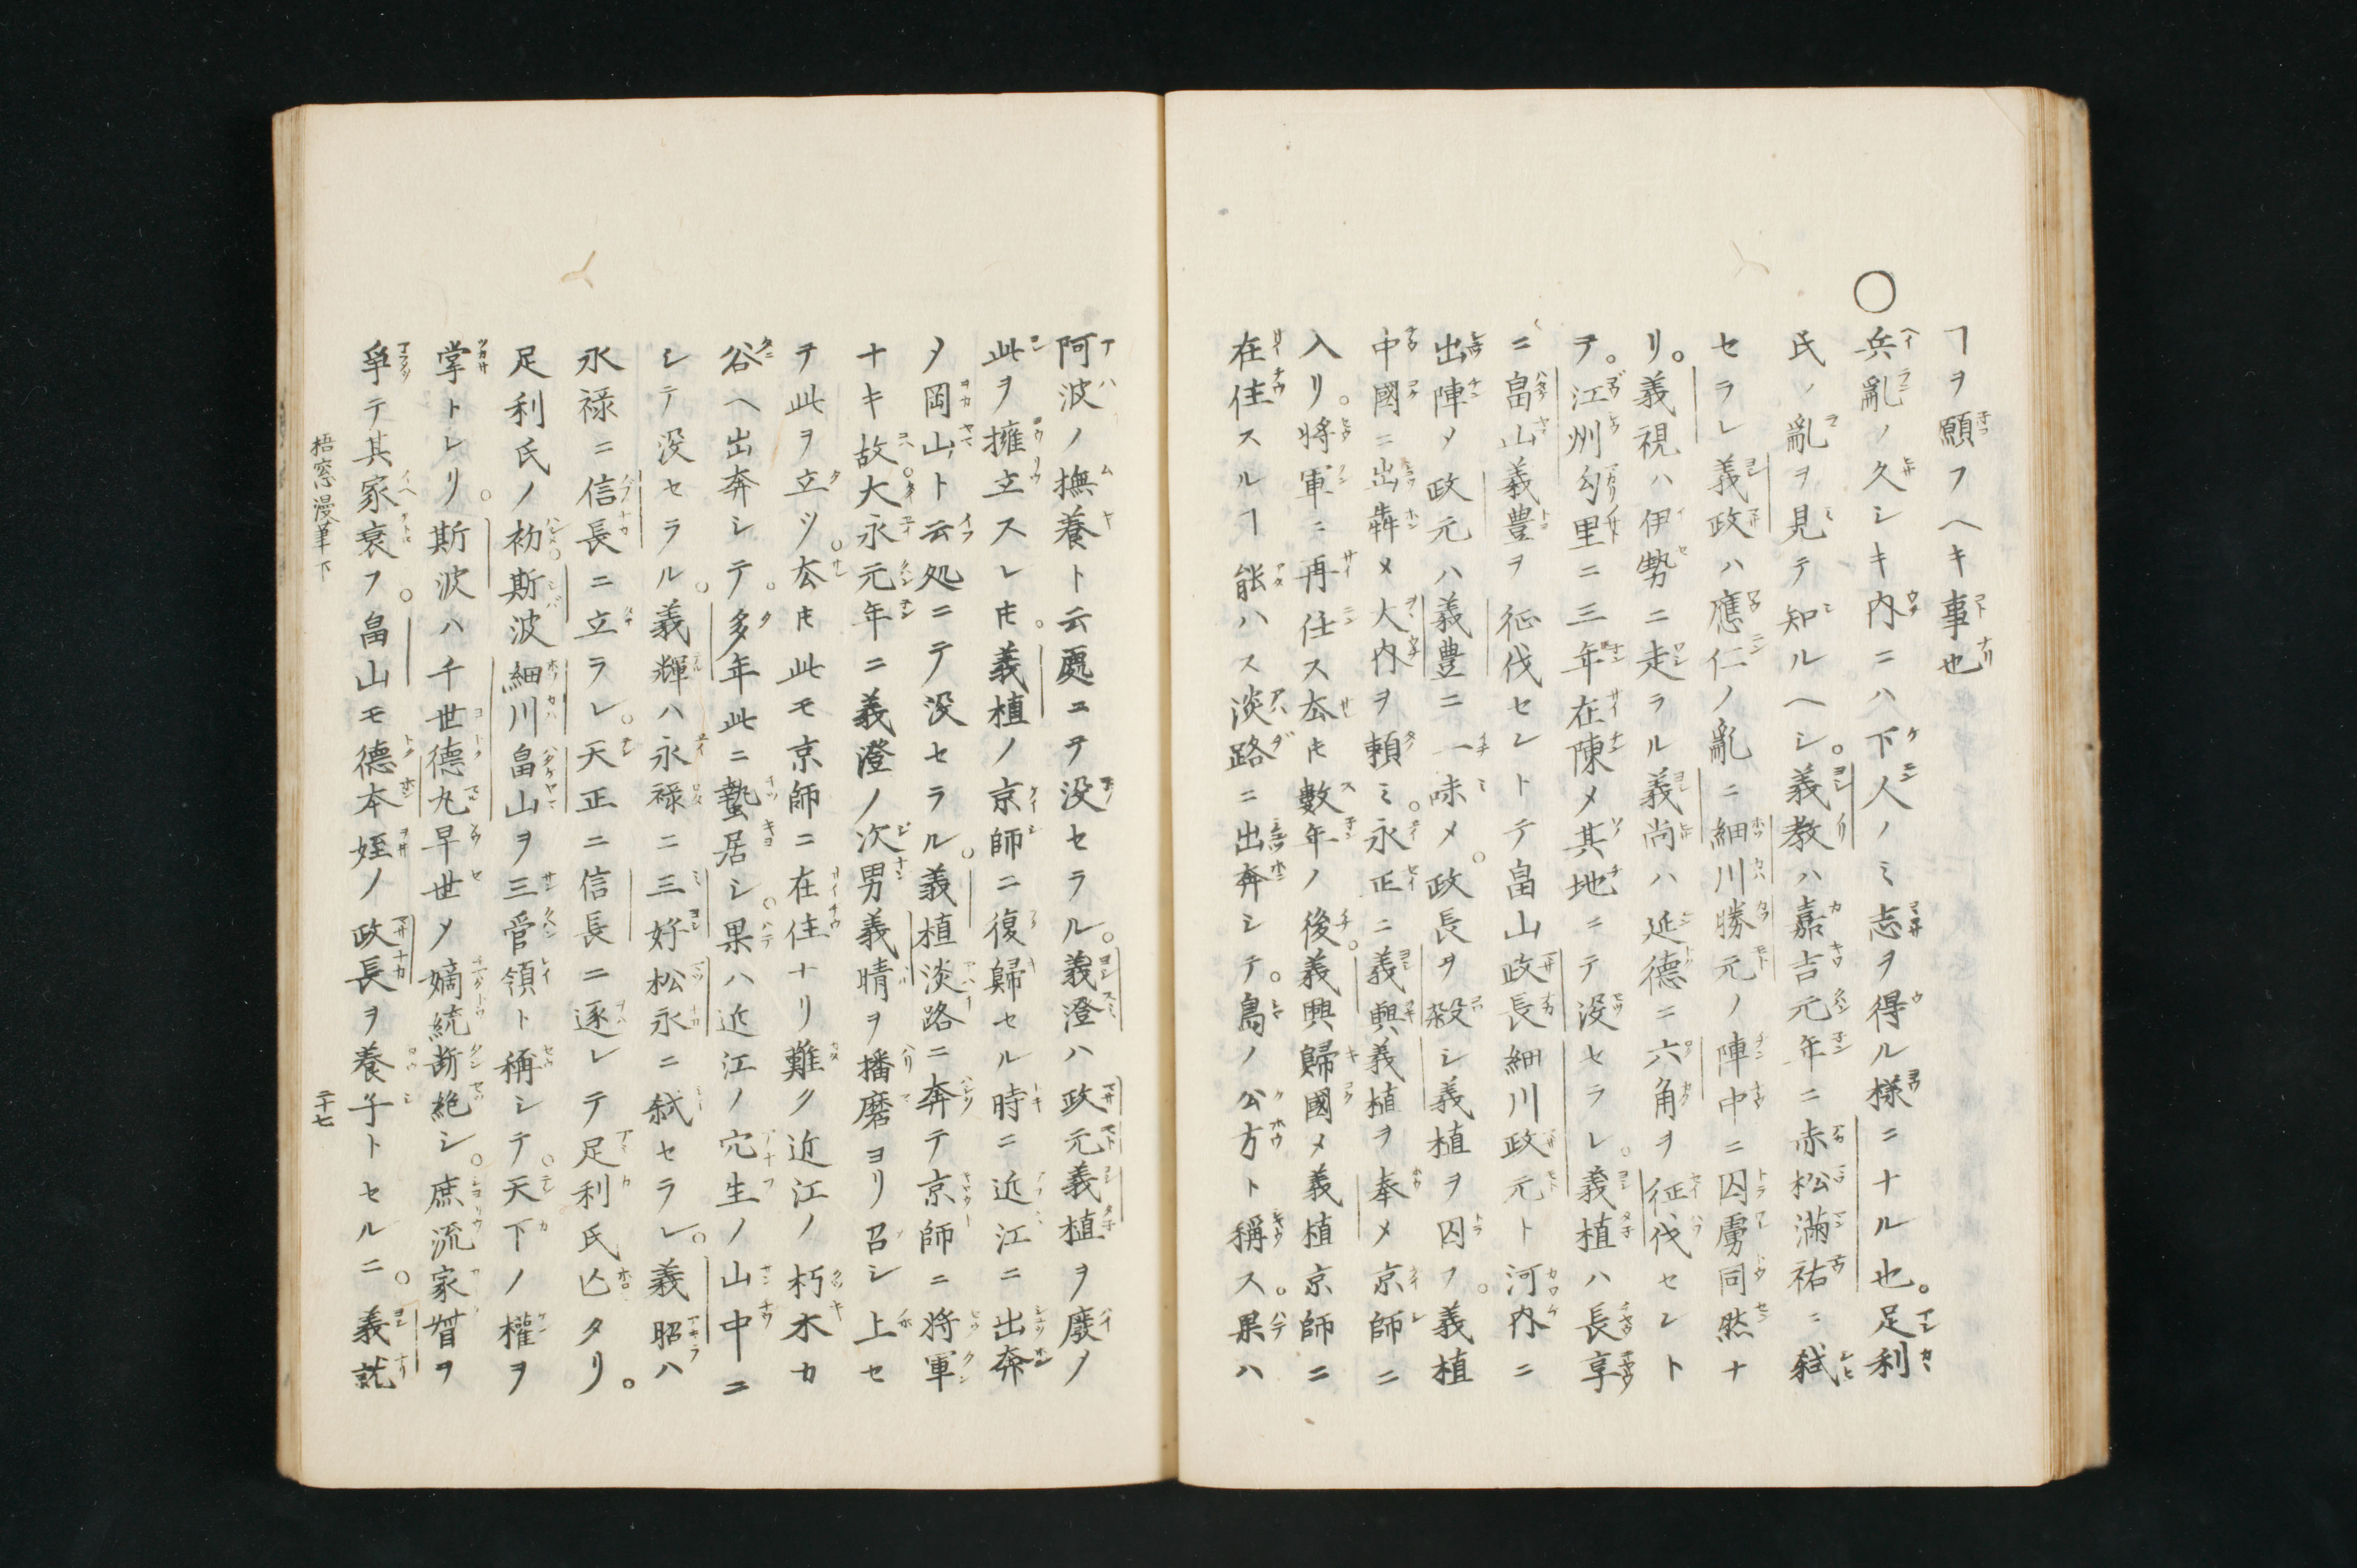 ヿヲ願フヘキ事也
○兵亂ノ久シキ内ニハ下人ノミ志ヲ得ル様ニナル也。足利
氏ノ亂ヲ見テ知ルヘシ。義教ハ嘉吉元年ニ赤松滿祐ニ弑
セラレ義政ハ應仁ノ亂ニ細川勝元ノ陣中ニ囚虜同然ナ
リ。義視ハ伊勢ニ走ラル義尚ハ延德ニ六角ヲ征伐セント
テ。江州勾里ニ三年在陳メ其地ニテ没セラレ。義植ハ長享
ニ畠山義豊ヲ征伐セントテ畠山政長細川政元ト河内ニ
出陣メ政元ハ義豊ニ一味メ。政長ヲ殺シ義植ヲ囚フ。義植
中國ニ出犇メ大内ヲ頼ミ。永正ニ義興義植ヲ奉メ京師ニ
入リ。將軍ニ再任ス厺𪜈數年ノ後。義興歸國メ義植京師ニ
在住スルヿ能ハス淡路ニ出奔シテ。島ノ公方ト稱ス。果ハ
阿波ノ撫養ト云處ニテ没セラル。義澄ハ政元義植ヲ廢ノ
此ヲ擁立スレ𪜈。義植ノ京師ニ復歸セル時ニ近江ニ出奔
メ岡山ト云処ニテ没セラル。義植淡路ニ奔テ京師ニ将軍
ナキ故。大永元年ニ義澄ノ次男義晴ヲ播磨ヨリ召シ上セ
テ此ヲ立ツ。厺𪜈此モ京師ニ在住ナリ難ク近江ノ朽木カ
谷ヘ出奔シテ。多年此ニ蟄居シ。果ハ近江ノ穴生ノ山中ニ
シテ没セラル。義輝ハ永禄ニ三好松永ニ弑セラレ。義昭ハ
永禄ニ信長ニ立ラレ。天正ニ信長ニ逐レテ足利氏亾タリ。
足利氏ノ初。斯波細川畠山ヲ三管領ト稱シテ。天下ノ權ヲ
掌トレリ。斯波ハ千世德丸早世メ嫡統断絶シ。庶流家督ヲ
爭テ其家衰フ。畠山モ德本姪ノ政長ヲ養子トセルニ。義就
梧窓漫筆下
二十七